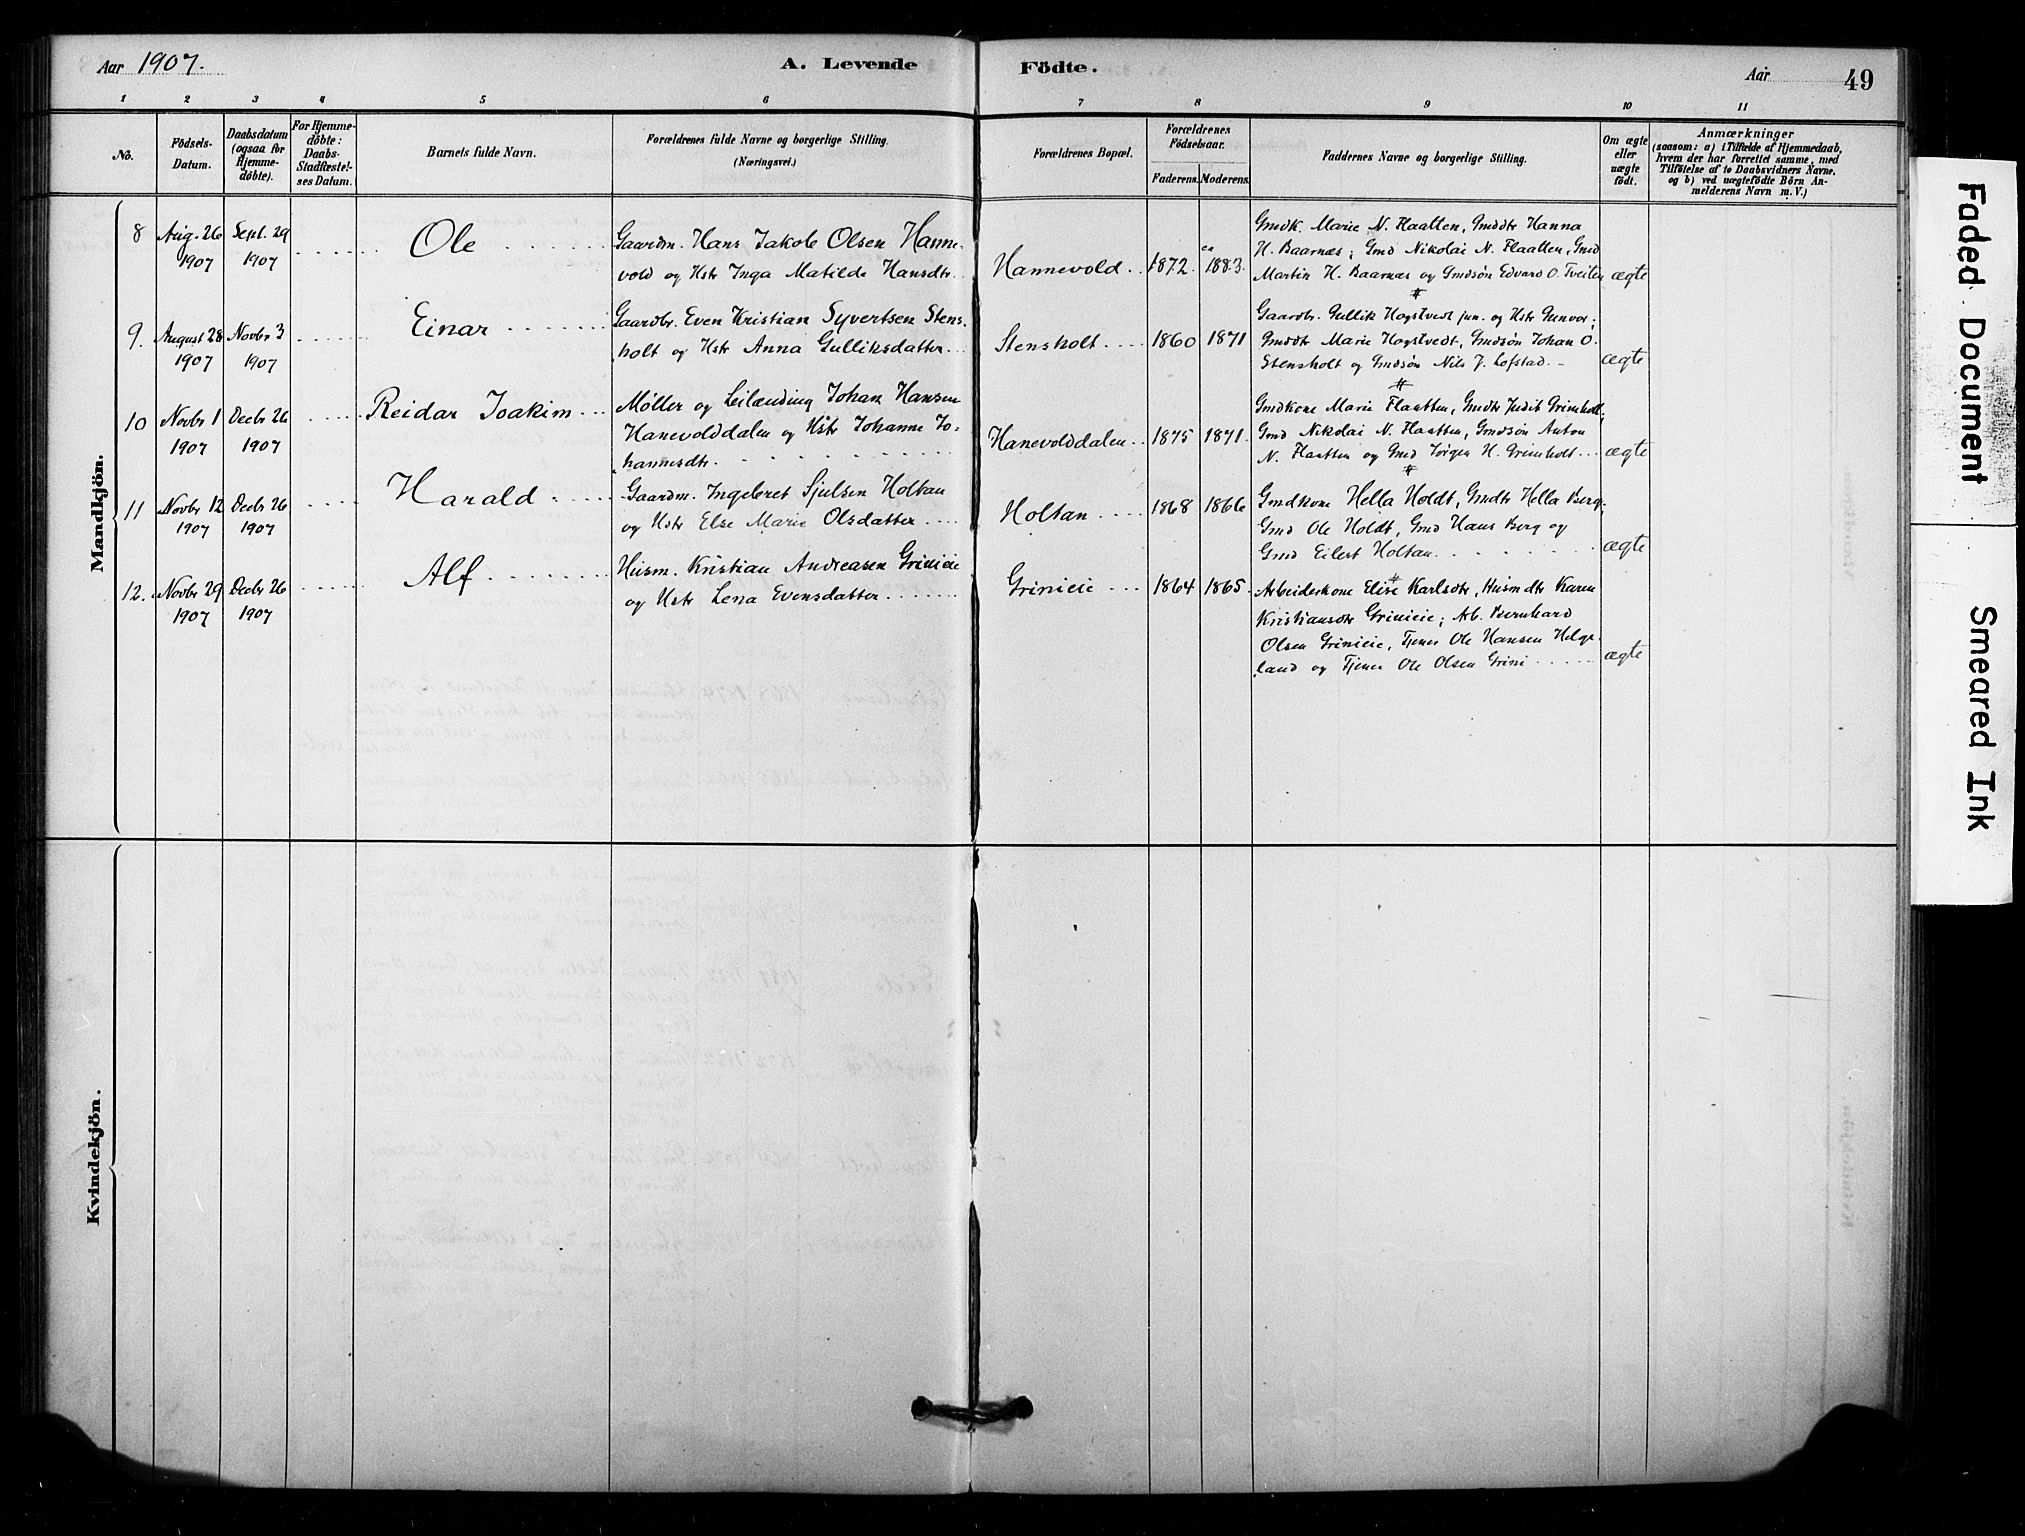 Aar 1907.
A. Levende Födte.
Aar
49
1 2 3 4 5 6 7 8 9 10 11
No.
Födsels-
Datum.
Daabsdatum
(ogsaa for
Hjemme-
döbte).
For Hjemme-
döbte:
Daabs-
Stadfæstel-
ses Datum.
Barnets fulde Navn.
Forældrenes fulde Navne og borgerlige Stilling.
(Næringsvei.)
Forældrenes Bopæl.
Forældrenes
Födselsaar.
Faderens. Moderens.
Faddernes Navne og borgerlige Stilling.
Om ægte
eller
uægte
födt.
Anmærkninger
(saasom: a) i Tilfælde af Hjemmedaab,
hvem der har forrettet samme, med
Tilföielse af to Daabsvidners Navne,
og b) ved uægtefödte Börn An-
melderens Navn m. V.)
Mandkjön.
8
Aug. 26
1907
Sept. 29
1907
Ole
Gaardm. Hans Jakob Olsen Hanne-
vold og Hstr Inga Matilde Hansdtr.
Hannevold
1872
ca
1883.
Gmdk. Marie N. Flaatten, Gmddtr Hanna
H. Baarnæs; Gmd Nikolai N. Flaatten, Gmd
Martin H. Baarnæs og Gmdsøn Edvard O. Tveiten
ægte
#
9.
August 28
1907
Novbr 3
1907
Einar
Gaardbr. Even Kristian Syvertsen Stens-
holt og Hstr Anna Gulliksdatter
Stensholt
1860
1871
Gaardbr. Gullik Hogstvedt jun. og Hstr Gunvor;
Gmddtr Marie Hogstvedt, Gmdsøn Johan O.
Stensholt og Gmdsøn Nils J. Lofstad.
ægte
#
10
Novbr 1
1907
Decbr 26
1907
Reidar Joakim
Møller og Leilænding Johan Hansen
Hanevolddalen og Hstr Johanne Jo-
hannesdtr.
Hanevolddalen
1875
1871.
Gmdkone Marie Flaatten, Gmdtr Judit Grimholt;
Gmd Nikolai N. Flaatten, Gmdsøn Anton
N. Flaatten og Gmd Jørgen H. Grimholt
ægte
#
11
Novbr 12
1907
Decbr 26
1907
Harald
Gaardm. Ingebret Sjulsen Holtan
og Hstr Else Marie Olsdatter
Holtan
1868
1866
Gmdkone Hella Holdt, Gmdtr Hella Berg;
Gmd Ole Holdt, Gmd Hans Berg og
Gmd Eilert Holtan.
ægte
#
12.
Novbr 29
1907
Decbr 26
1907
Alf
Husm. Kristian Andreasen Grinieie
og Hstr Lena Evensdatter
Grinieie
1864
1865.
Arbeiderkone Elise Karlsdtr, Husmdtr Karen
Kristiansdtr Grinieie; Arb. Bernhard
Olsen Grinieie, Tjener Ole Hansen Helge-
land og Tjener Ole Olsen Grini
ægte
Kvindekjön.
Faded Document
Smeared Ink